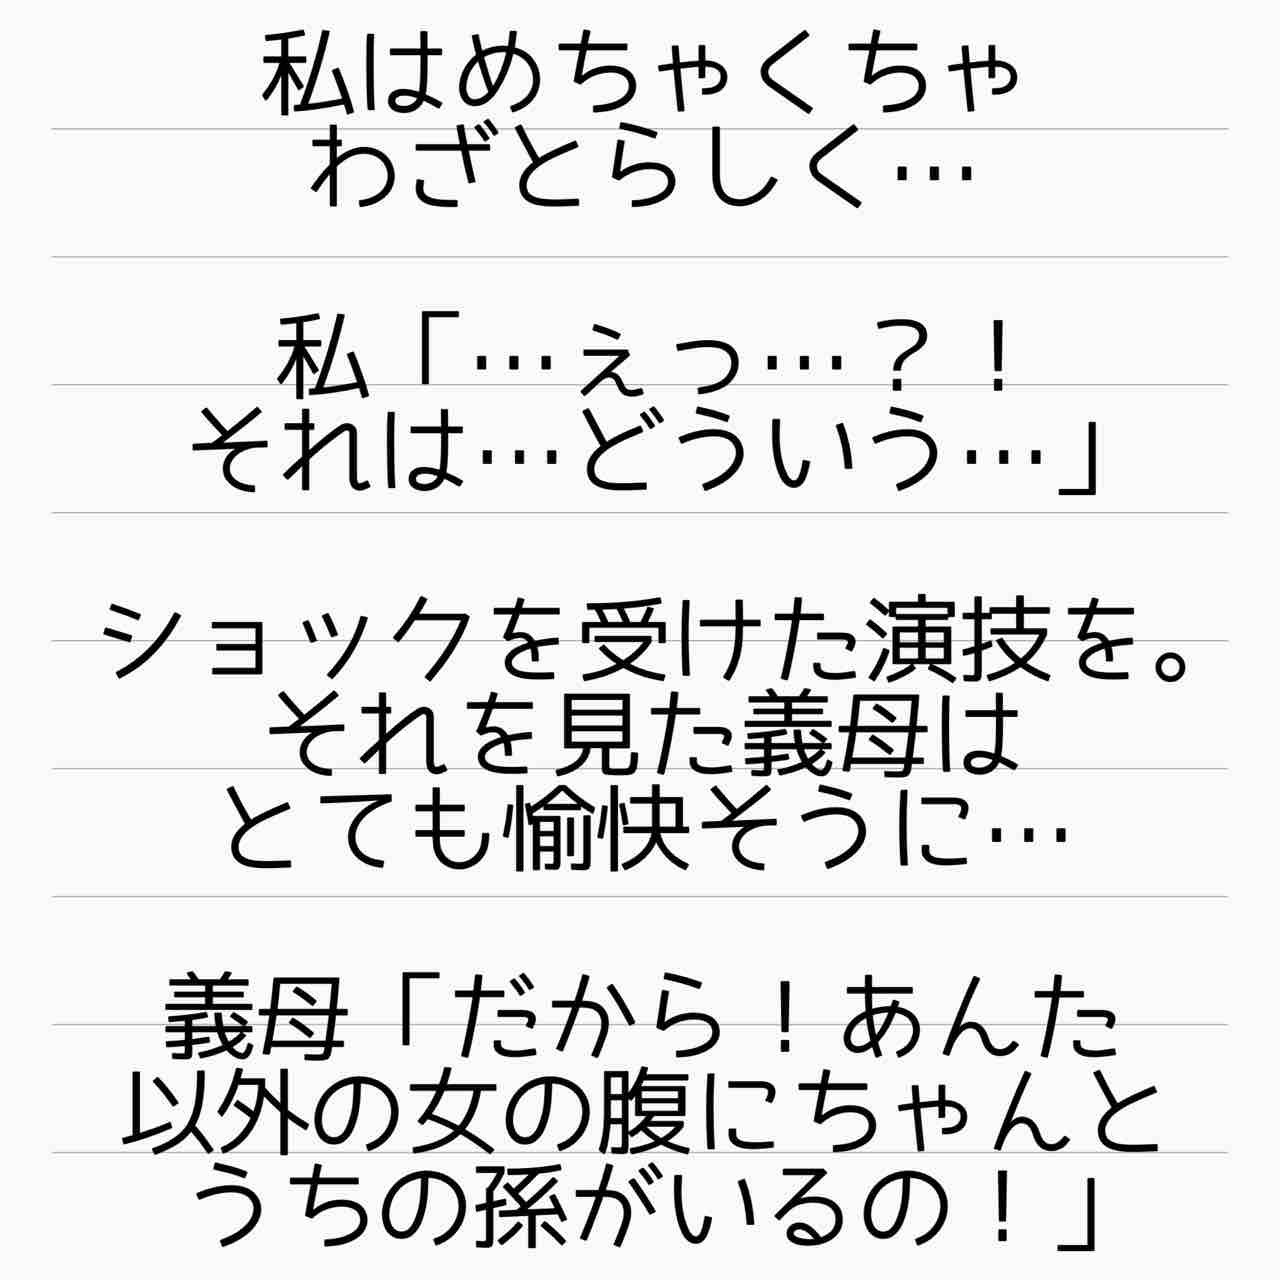 私はめちゃくちゃ
わざとらしく…
私「…ぇっ…？！
それは…どういう…」
ショックを受けた演技を。
それを見た義母は
とても愉快そうに…
義母「だから！あんた
以外の女の腹にちゃんと
うちの孫がいるの！」